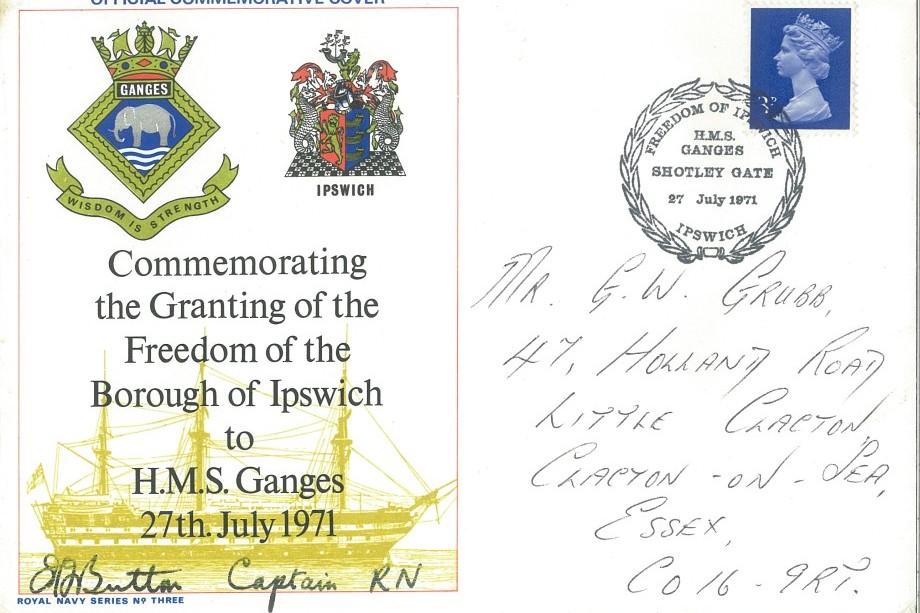 OFFICIAL COMMEMORATIVE COVER
GANGES
WISDOM IS STRENGTH
IPSWICH
Commemorating
the Granting of the
Freedom of the
Borough of Ipswich
to
H.M.S. Ganges
27th. July 1971
Button Captain RN
ROYAL NAVY SERIES Nº THREE
3P
FREEDOM OF IPSWICH
H.M.S.
GANGES
SHOTLEY GATE
27 July 1971
IPSWICH
MR. G. W. GRUBB,
47, HOLLAND ROAD
LITTLE CLACTON,
CLACTON-ON-SEA,
ESSEX,
CO16-9RT.